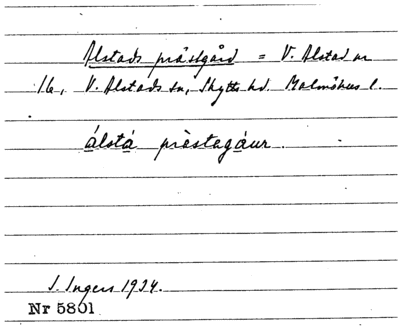 Alstads prästgård = V. Alstad nr
16, V. Alstads sn, Skytts hd. Malmöhus l.
álstá prästagáur.
I. Ingers 1934.
Nr 5801